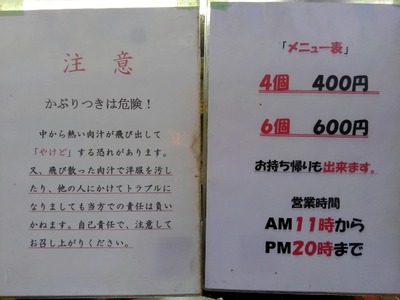 注 意
かぶりつきは危険！
中から熱い肉汁が飛び出して
「やけど」する恐れがあります。
又、飛び散った肉汁で洋服を汚し
たり、他の人にかけてトラブルに
なりましても当方での責任は負い
かねます。自己責任で、注意して
お召し上がりください。
「メニュー表」
4個 400円
6個 600円
お持ち帰りも出来ます。
営業時間
AM11時から
PM20時まで